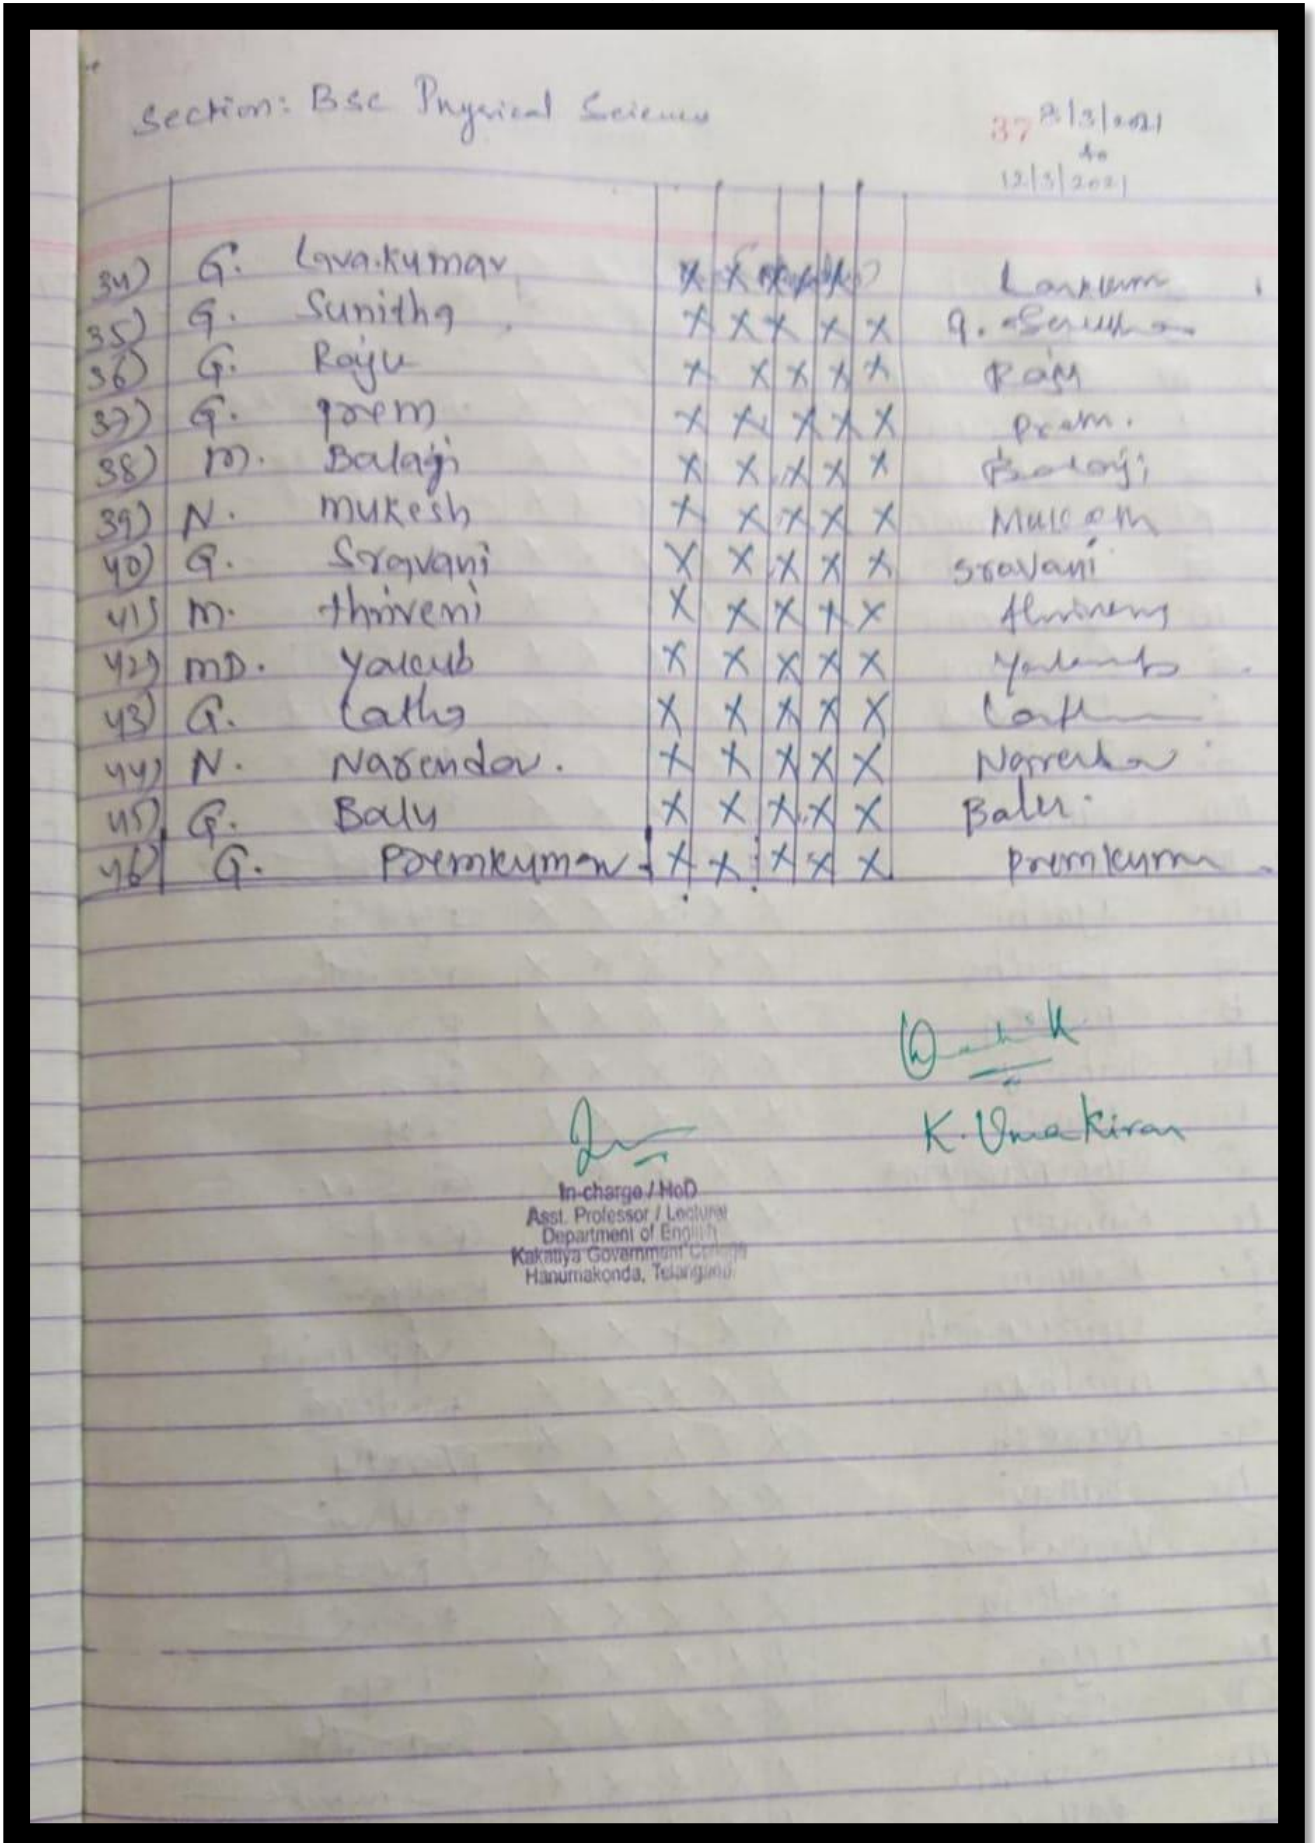 Section: Bsc Physical Science
37 8/3/2021
to
12/3/2021
34) G. Lava.Kumar x x x x x
35) G. Sunitha x x x x x G. Sunitha
36) G. Raju x x x x x Raju
37) G. prem x x x x x Prem.
38) m. Balaji x x x x x Balaji
39) N. mukesh x x x x x Mukesh
40) G. Sravani x x x x x sravani
41) m. thriveni x x x x x thriveni
42) MD. Yakub x x x x x Yakub
43) G. Latha x x x x x Latha
44) N. Narendar. x x x x x Narendar
45) G. Balu x x x x x Balu.
46) G. Premkumar x x x x x Premkumar
K. Uma Kiran
In-charge / HoD
Asst. Professor / Lecturer
Department of English
Kakatiya Government College
Hanumakonda, Telangana.